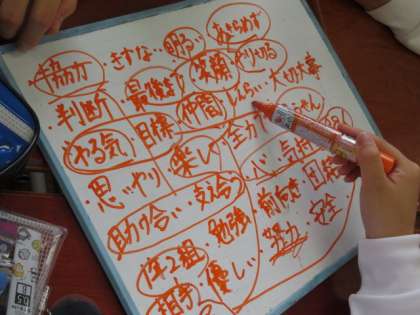 協力・きずな・明るい・あきらめず
判断・最後まで・笑顔・やりとげる
やる気・目標・仲間・大切・大事
思いやり・楽しく・全力・心・気持ち
助け合い・支え合う・前向き・団結
1年2組・勉強・努力・安全
相手・優しい